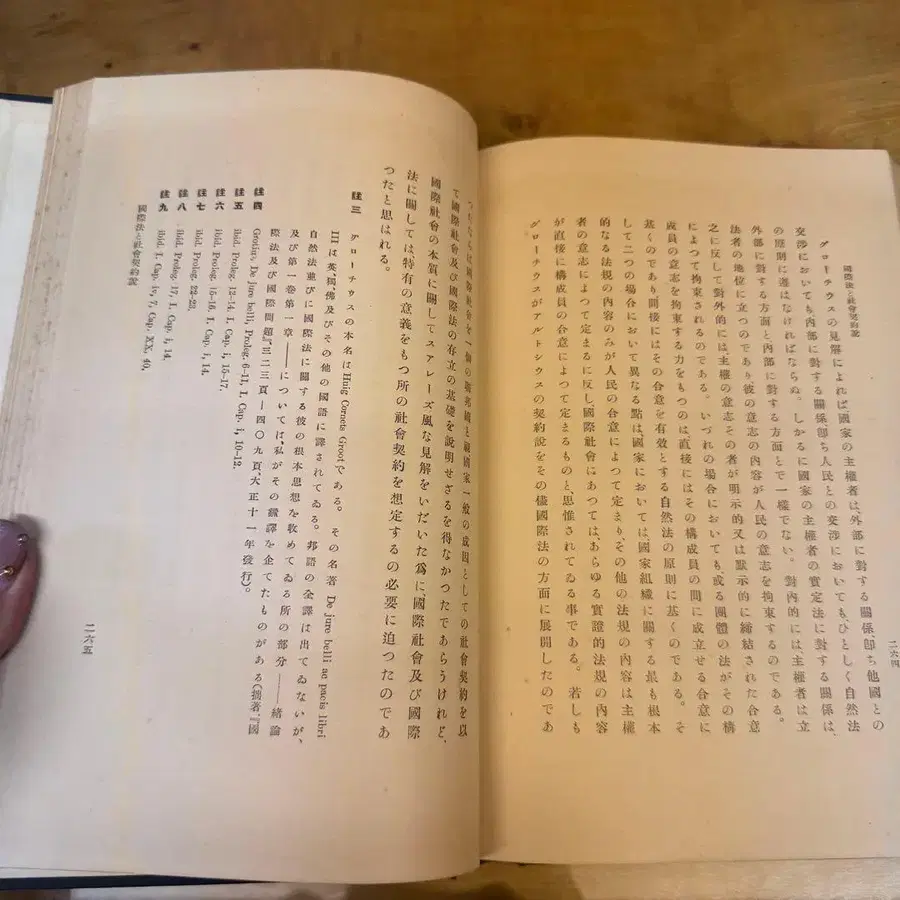 國際法と社會契約說
二六四
グローチウスの見解によれば國家の主權者は、外部に對する關係卽ち他國との
交渉においても、內部に對する關係卽ち人民との交渉においても、ひとしく自然法
の原則に遵はなければならぬ。しかるに國家の主權者の實定法に對する關係は、
外部に對する方面と、內部に對する方面とで一樣でない。對內的には、主權者は立
法者の地位に立つのであり、彼の意志の內容が人民の意志を拘束するのである。
之に反して對外的には主權の意志その者が明示的又は默示的に締結された合意
によつて拘束されるのである。いづれの場合においても、或る團體の法がその構
成員の意志を拘束する力をもつのは、直接にはその構成員の間に成立せる合意に
基くのであり、間接にはその合意を有效とする自然法の原則に基くのである。そ
して二つの場合において異なる點は、國家においては、國家組織に關する最も根本
的なる法規の內容のみが人民の合意によつて定まり、その他の法規の內容は主權
者の意志によつて定まるに反し、國際社會にあつては、あらゆる實證的法規の內容
が直接に構成員の合意によつて定まるものと思惟されてゐる事である。若しも
グローチウスがアルトシウスの契約說をその儘國際法の方面に展開したのであ
つたならば、國際社會を一個の
て國際社會及び國際法の存立の基礎を說明せざるを得なかつたであらうけれど、
國際社會の本質に關してスアレーズ風な見解をいだいた爲に、國際社會及び國際
法に關しては、特有の意義をもつ所の社會契約を想定するの必要に迫つたのであ
つたと思はれる。
註三 グローチウスの本名は Huig Cornets Groot である。その名著 De jure belli ac pacis libri
III は英、獨、佛及びその他の國語に譯されてゐる。邦語の全譯は出てゐないが、
自然法並びに國際法に關する彼の根本思想を收めてゐる所の部分——緖論
及び第一卷第一章——については、私がその飜譯を企てたものがある(拙著、『國
際法及び國際問題』三三三頁—四〇九頁、大正十一年發行)。
註四 Grotius, De jure belli, Proleg. 6-11, I, Cap. i, 10-12.
註五 ibid. Proleg. 12-14. I, Cap. i, 15-17.
註六 ibid. Proleg. 15-16. I, Cap. i, 14.
註七 ibid. Proleg. 22-23.
註八 ibid. Proleg. 17, I, Cap. i, 14.
註九 ibid. I. Cap. iv, 7, Cap. XX, 40.
國際法と社會契約說
二六五